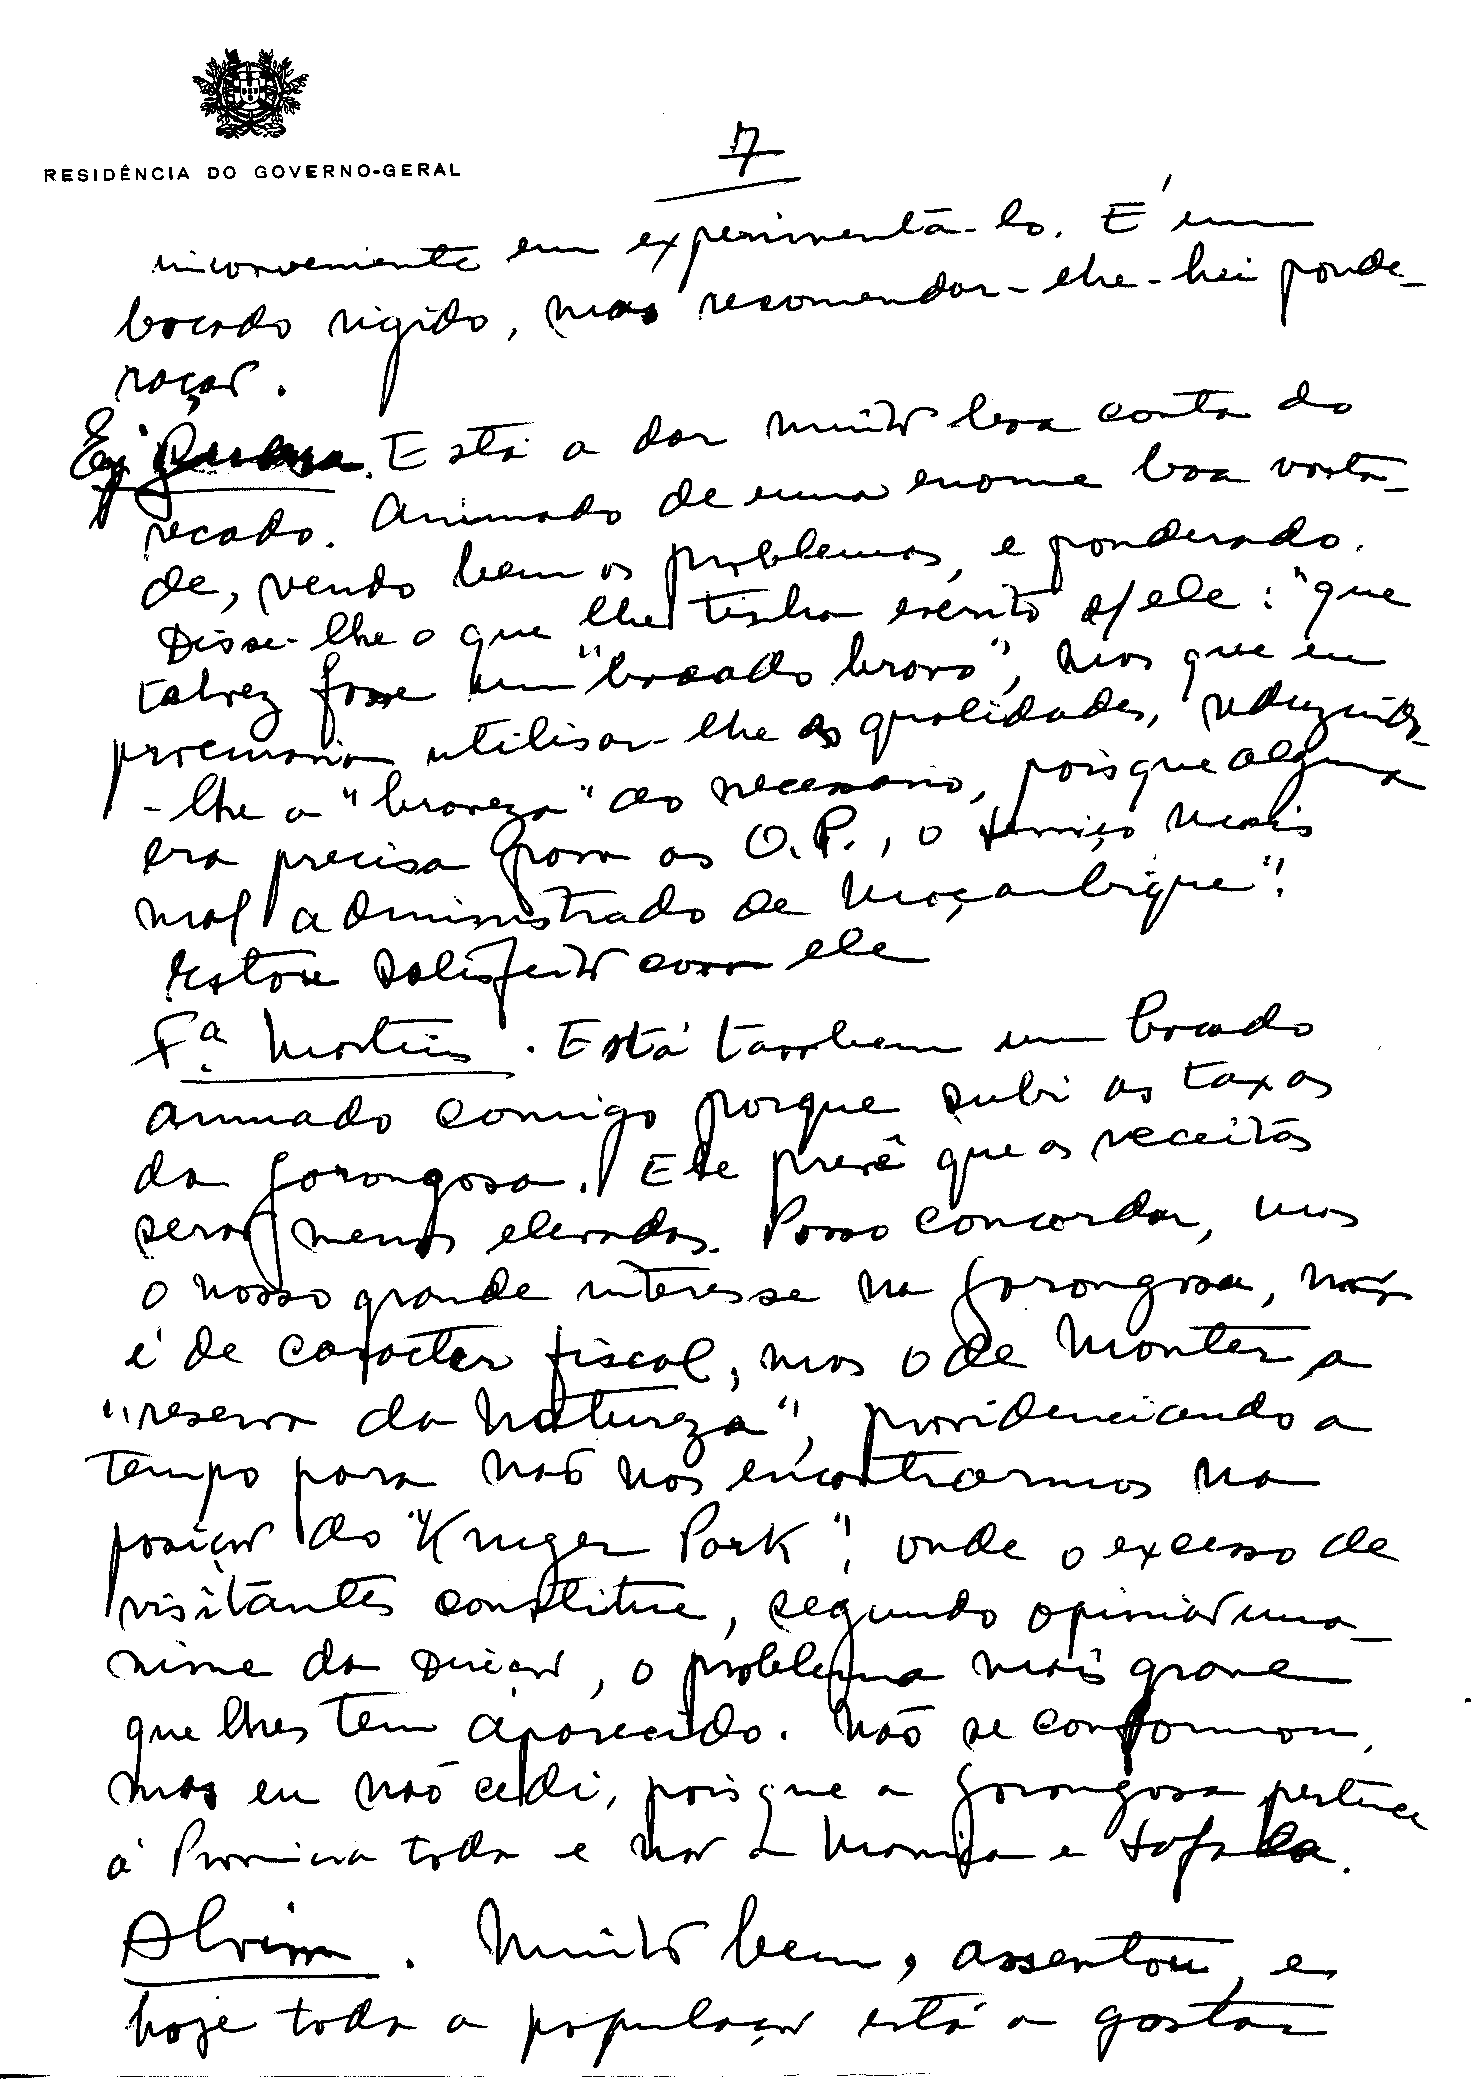 RESIDÊNCIA DO GOVERNO-GERAL
7
inconveniente em experimentá-lo. É um
bocado rigido, mas recomendar-lhe-hei ponde-
ração.
Está a dar muito boa conta do
recado. Animado de uma enorme boa vonta-
de, vendo bem os problemas, e ponderado.
Disse-lhe o que lhe tinha escrito s/ ele: "que
talvez fosse um "bocado bravo", mas que eu
procuraria utilisar-lhe as qualidades, reduzindo-
-lhe a "braveza" ao necessario, pois que alguma
era precisa para as O.P., o serviço mais
mal administrado de Moçambique".
Estou satisfeito com ele
Fª. Martins. Está tambem um bocado
amuado comigo porque subi as taxas
da Gorongosa. Ele prevê que as receitas
serão menos elevadas. Posso concordar, mas
o nosso grande interesse na Gorongosa, não
é de caracter fiscal, mas o de manter a
"reserva da Natureza", providenciando a
tempo para não nos encontrarmos na
posição do "Kruger Park", onde o excesso de
visitantes constitue, segundo opinião una-
nime da Direção, o problema mais grave
que lhes tem aparecido. Não se conformou,
mas eu não cedi, pois que a Gorongosa pertence
à Provincia toda e não a Manica e Sofala.
Alvim. Muito bem, assentou, e
hoje toda a população está a gostar